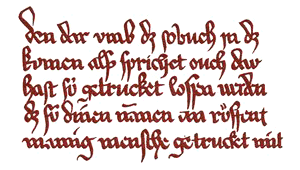 den dar vmb dz so buch jn dz
komen alß sprichet ouch dar
hast so getrucket lossen werdn
dz so dinen namen an röffent
mannig mensche getrucket mit